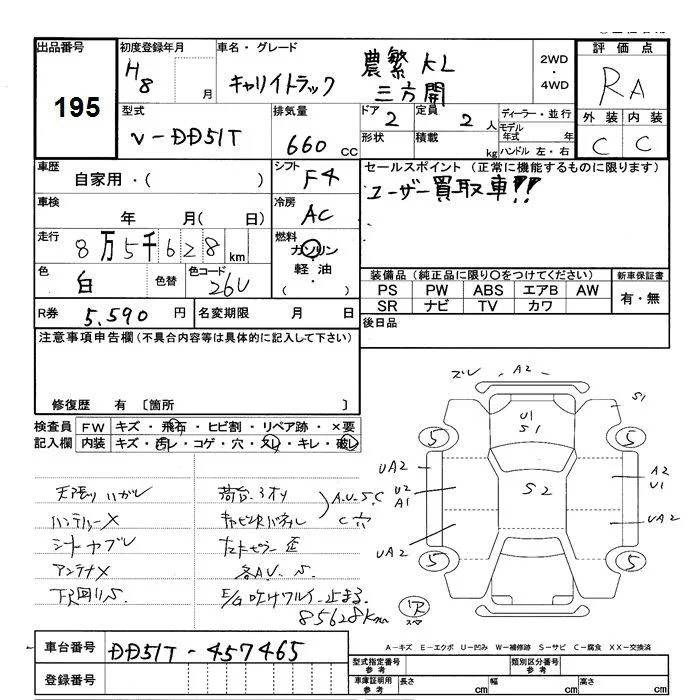 出品番号
195
初度登録年月
H8
月
車名・グレード
キャリイトラック
農繁 KL
三方開
2WD
・
4WD
評価点
RA
外装 内装
C C
型式
V-DD51T
排気量
660 cc
ドア 2
定員 2 人
形状
積載 kg
ディーラー・並行
モデル年式 年
ハンドル 左・右
車歴
自家用・( )
シフト
F4
セールスポイント (正常に機能するものに限ります)
ユーザー買取車!!
車検
年 月( 日)
冷房
AC
走行
8万5千628km
燃料
ガソリン
軽油
( ・ )
色
白
色替
色コード
26U
装備品 (純正品に限り○をつけてください)
新車保証書
PS PW ABS エアB AW
SR ナビ TV カワ
有・無
R券 5,590 円
名変期限 月 日
後日品
注意事項申告欄(不具合内容等は具体的に記入して下さい)
修復歴 有 〔箇所 〕
検査員記入欄
FW キズ・飛石・ヒビ割・リペア跡・×要
内装 キズ・汚レ・コゲ・穴・スレ・キレ・破レ
天張りハガレ
シートヤブレ
アンテナ×
下廻りS
荷台
A.U.S.C
C穴
各AU S
E/G吹けワルイ 止まる
85628km
ズレ
A2
S1
U1
S1
5
5
UA2
U2
A1
S2
A2
U1
UA2
UA2
5
5
車台番号
DD51T-457465
登録番号
A-キズ E-エクボ U-凹み W-補修跡 S-サビ C-腐食 XX-交換済
型式指定番号 参考
類別区分番号 参考
車庫証明用 参考
長さ cm
幅 cm
高さ cm